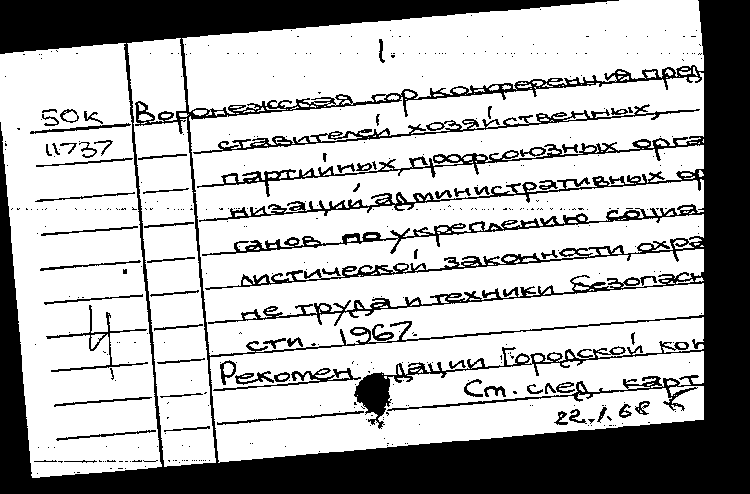 1.
50к Воронежская гор.конференция пред-
11737 ставителей хозяйственных,
партийных, профсоюзных орга
низаций, административных ор
ганов по укреплению социа
листической законности, охра
не труда и техники безопасн
сти. 1967.
4
Рекомен дации Городской кон
См. след. карт
22.1.68